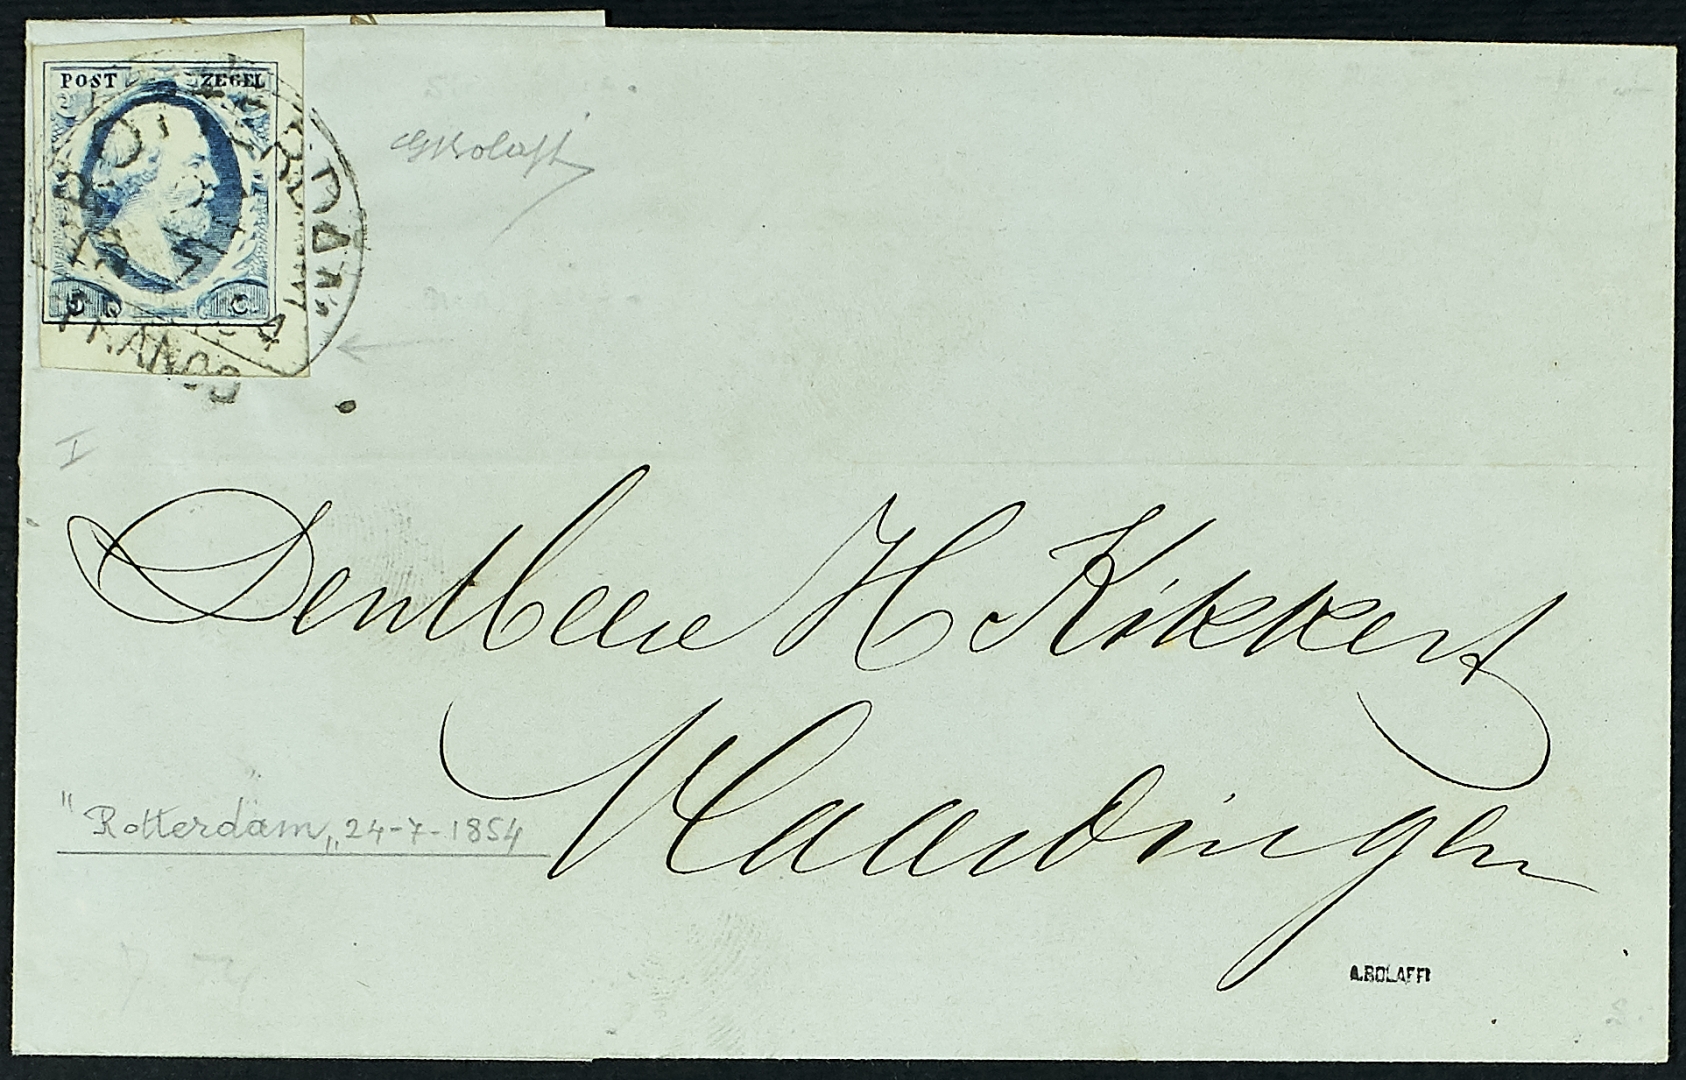 POST ZEGEL
ROTTERDAM
5 C.
FRANCO
GBolaffi
I
Den Heere H Kikkert
Vlaardingen
"Rotterdam„ 24-7-1854
A.BOLAFFI